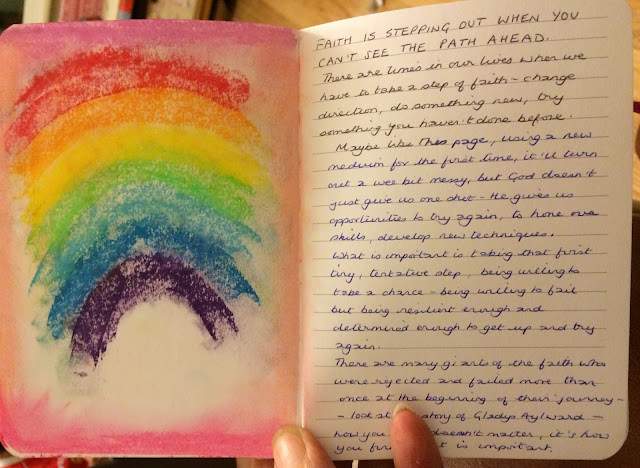 FAITH IS STEPPING OUT WHEN YOU
CAN'T SEE THE PATH AHEAD.
There are times in our lives when we
have to take a step of faith - change
direction, do something new, try
something you haven't done before.
Maybe like this page, using a new
medium for the first time, it'll turn
out a wee bit messy, but God doesn't
just give us one shot - He gives us
opportunities to try again, to hone our
skills, develop new techniques.
What is important is taking that first
tiny, tentative step, being willing to
take a chance - being willing to fail
but being resilient enough and
determined enough to get up and try
again.
There are many giants of the faith who
were rejected and failed more than
once at the beginning of their journey -
- look at story of Gladys Aylward -
how you doesn't matter, it's how
you is important.